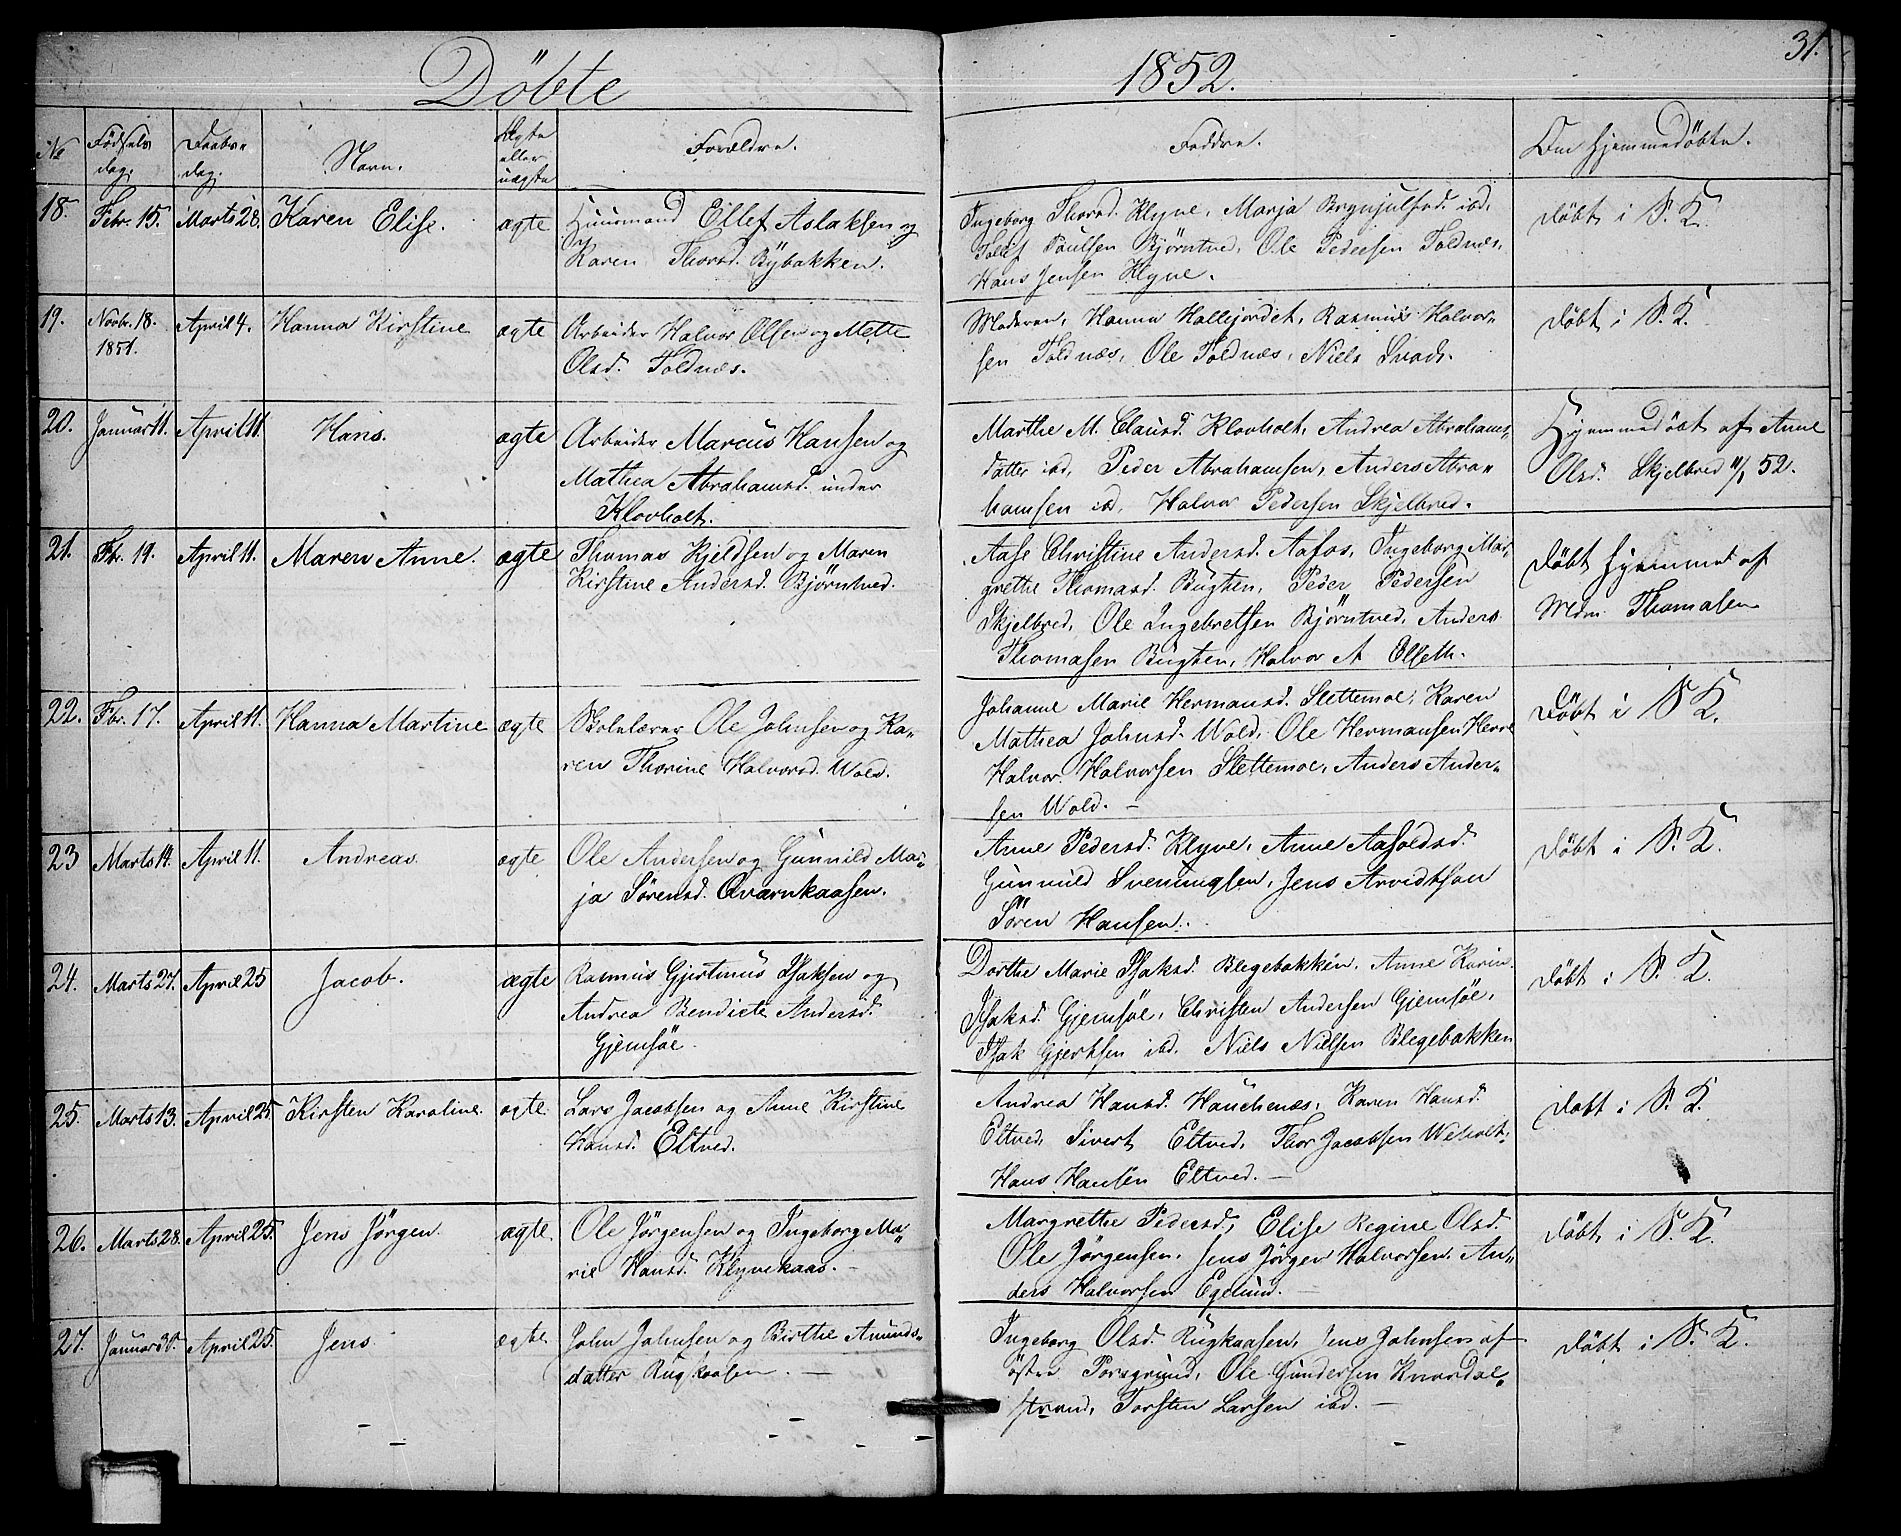 31.
Döbte 1852.
No Födsels dag. Daabs dag. Navn. Ægte eller uægte Forældre. Faddre. Om Hjemmedöbte.
18. Febr. 15. Marts 28. Karen Elise. ægte
Huusmand Ellef Aslaksen og
Karen Thorsd. Bÿbakken.
Ingeborg Thorsd. Klyve, Marja Brynjulfsd. ibd.
Tollef Paulsen Bjørntved, Ole Pedersen Foldnæs,
Hans Jensen Klyve.
Döbt i S. K.
19. Novbr. 18. 1851. April 4. Hanna Kirstine ægte
Arbeider Halvor Olsen og Mette
Olsd. Foldnæs.
Moderen, Hanna Hallijordet, Rasmus Halvor-
sen Foldnæs, Ole Foldnæs, Niels
Döbt i S. K.
20. Januar 11. April 11. Hans. ægte
Arbeider Marcus Hansen og
Mathea Abrahamsd. under
Klovholt.
Marthe M. Clausd. Klovholt, Andrea Abrahams-
datter ibd, Peder Abrahamsen, Anders Abra-
hamsen ibd, Halvor Pedersen Skjelbred.
Hjemmedöbt af Anne
Olsd. Skjelbred 11/1 52.
21. Fbr. 19. April 11. Maren Anne. ægte
Thomas Kjeldsen og Maren
Kirstine Andersd. Bjørntved.
Aase Christine Andersd. Aafos, Ingeborg Mar-
grethe Thomasd. Bugten, Peder Pedersen
Skjelbred, Ole Ingebretsen Bjørntved, Anders
Thomasen Bugten, Halvor A Olseth.
Döbt hjemmet af
Mdm. Thomasen
22. Fbr. 17. April 11. Hanna Martine ægte
Skolelærer Ole Johnsen og Ka-
ren Thorine Halvorsd. Wold.
Johanne Marie Hermansd. Slettemoe, Karen
Mathea Johnsd. Wold, Ole Hermansen Herre
Halvor Halvorsen Slettemoe, Anders Ander-
sen Wold. —
Döbt i S K.
23 Marts 14. April 11. Andreas. ægte
Ole Andersen og Gunnild Mar-
ja Sörensd. Qvarnkaasen.
Anne Pedersd. Klyve, Anne Aasoldsd.
Gunnild Sveningsen, Jens Arvidtson
Sören Hansen.
Döbt i S. K.
24. Marts 27. April 25 Jacob. ægte
Rasmus Gjertinus Isaksen og
Andrea Bendicte Andersd.
Gjemsöe.
Dorthe Marie Isaksd. Blegebakken, Anne Karin
Isaksd. Gjemsöe, Christen Andersen Gjemsöe,
Isak Gjertsen ibd, Niels Nielsen Blegebakken
Döbt i S. K.
25. Marts 13. April 25. Kirsten Karoline. ægte.
Lars Jacobsen og Anne Kirstine
Hansd. Eltved.
Andrea Hansd. Hauchenæs, Karen Hansd.
Eltved, Sivert Eltved, Thor Jacobsen Weholt,
Hans Hansen Eltved. —
Döbt i S. K.
26. Marts 28. April 25. Jens Jörgen. ægte.
Ole Jörgensen og Ingeborg Ma-
rie Hansd. Klyvekaas. —
Margrethe Pedersd., Elise Regine Olsd.
Ole Jörgensen, Jens Jörgen Halvorsen. An-
ders Halvorsen Egelund. —
Döbt i S. K.
27. Januar 30. April 25. Jens ægte.
John Johnsen og Birthe Amunds-
datter Rugkaasen. —
Ingeborg Olsd. Rugkaasen, Jens Johnsen af
östre Porsgrund, Ole Gundersen Knardal-
strand, Torsten Larsen ibd. —
Döbt i S. K.